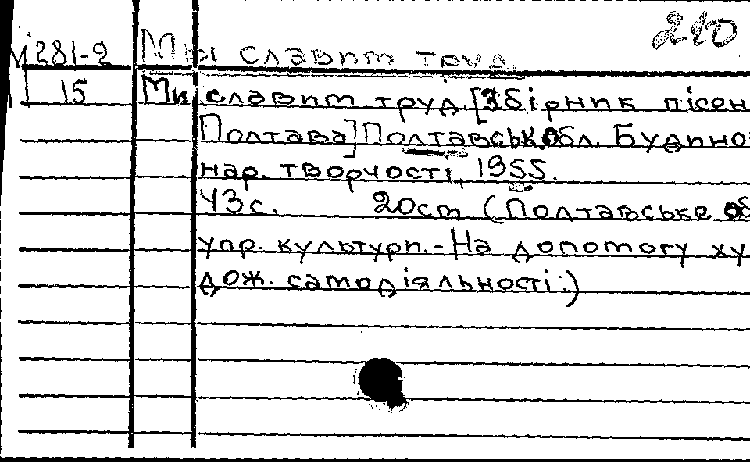 210
М281-2 Мы славит труд
15 Ми славит труд. [Збірник пісен
Полтава] Полтавськ. обл. Будино
нар. творчості, 1955.
43с. 20см (Полтавське об
упр. культури.-На допомогу ху
дож. самодіяльності.)